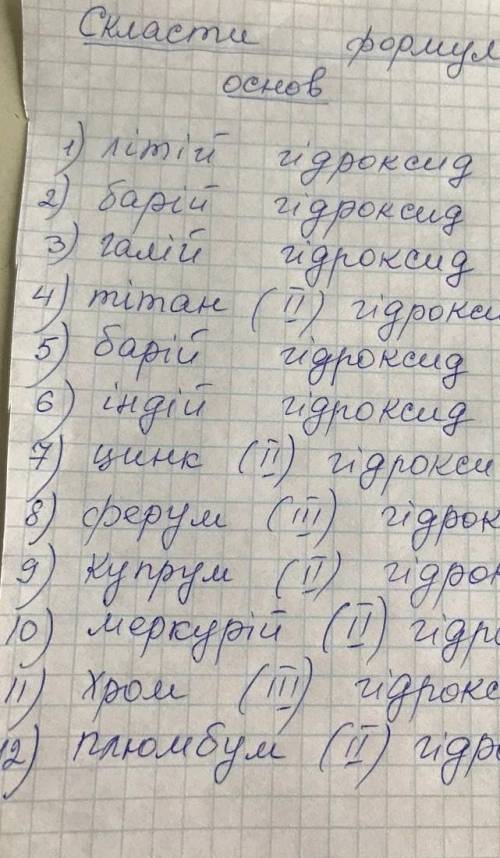 Скласти формул
основ
1) літій гідроксид
2) барій гідроксид
3) галій гідроксид
4) тітан (II) гідрокси
5) барій гідроксид
6) індій гідроксид
7) цинк (II) гідрокси
8) ферум (III) гідрок
9) купрум (II) гідрок
10) меркурій (II) гідро
11) хром (III) гідрокс
12) плюмбум (II) гідро